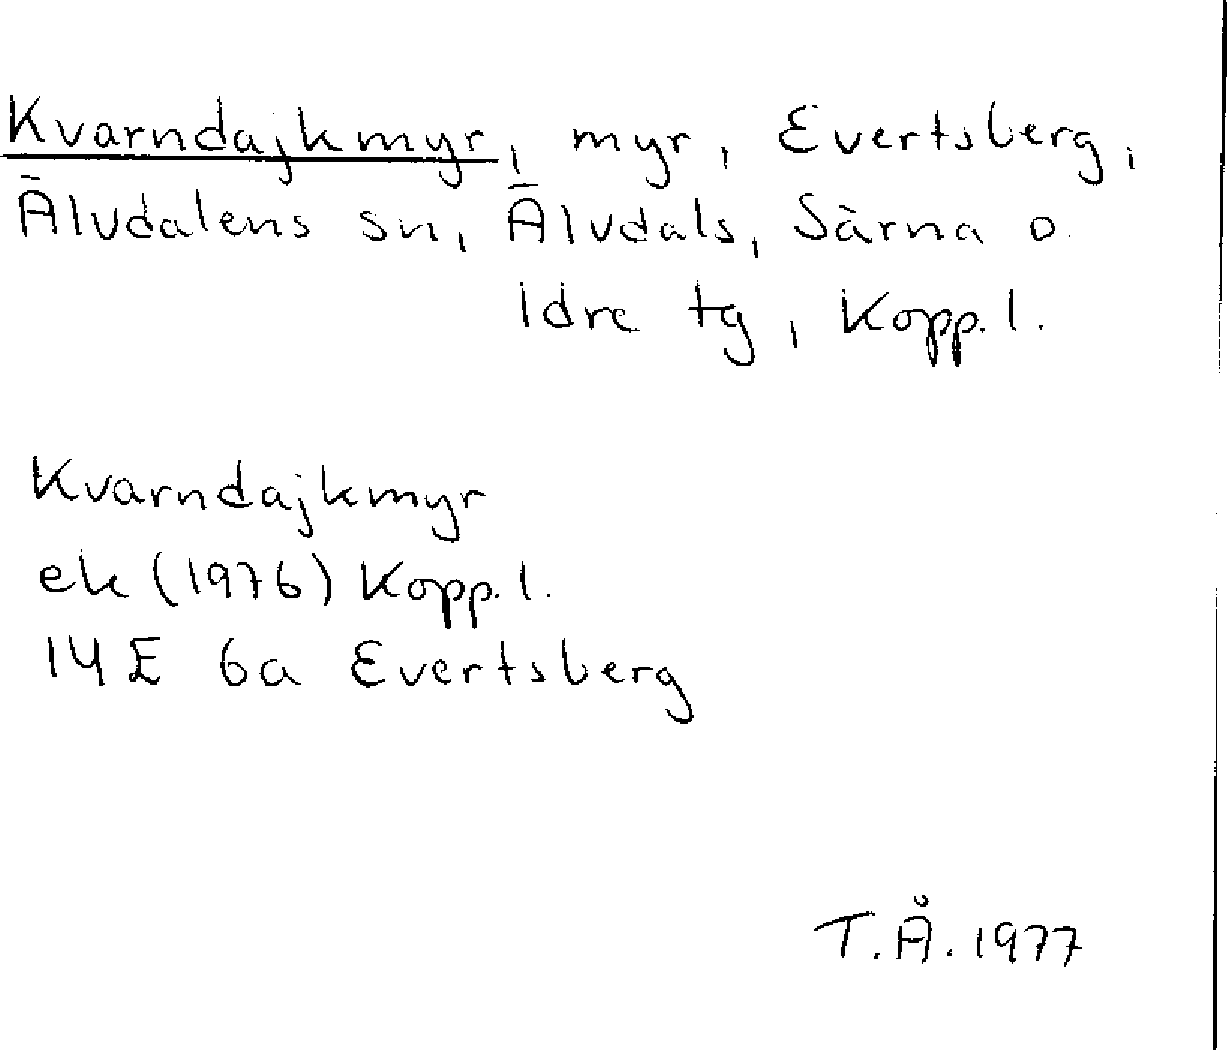 Kvarndajkmyr, myr, Evertsberg,
Älvdalens sn, Älvdals, Särna o.
Idre tg, Kopp. l.
Kvarndajkmyr
ek (1976) Kopp. l.
14E 6a Evertsberg
T.Å. 1977